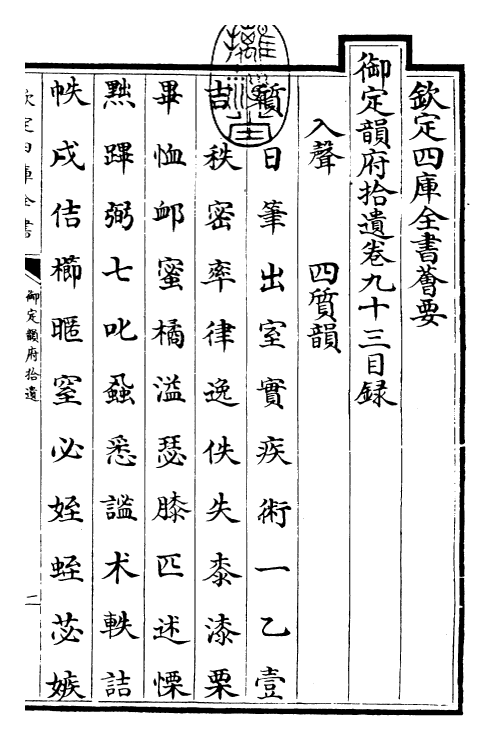 欽定四庫全書薈要
御定韻府拾遺卷九十三目録
入聲 四質韻
質日筆出室實疾術一乙壹
吉秩密率律逸佚失桼漆栗
畢恤卹蜜橘溢瑟膝匹述慄
黜蹕弼七叱蝨悉謐术軼詰
帙戌佶櫛暱窒必姪蛭苾嫉
欽定四庫全書
御定韻府拾遺